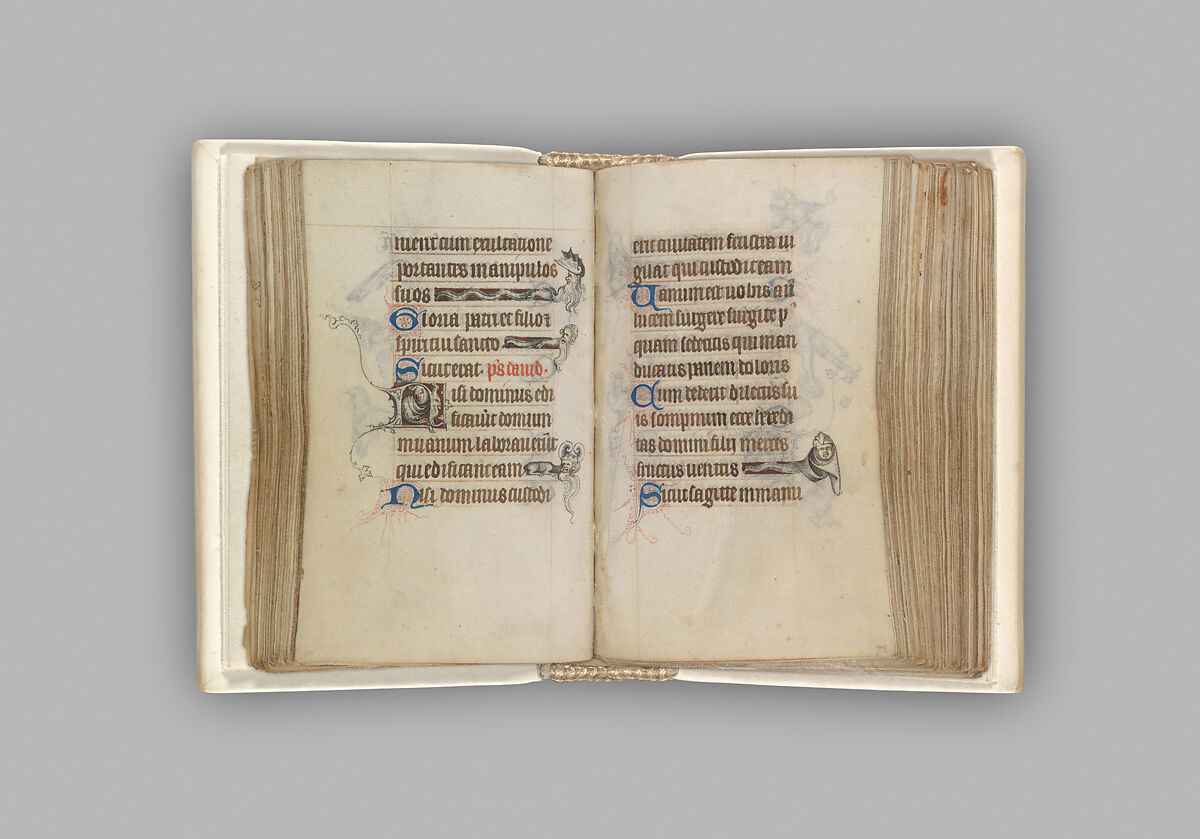 nient cum exultatione
portantes manipulos
suos
Gloria patri et filio et
spiritui sancto
Sicut erat. ps dauid.
Nisi dominus edi
ficauit domum
in uanum laborauerunt
qui edificant eam
Nisi dominus custodi
erit ciuitatem frustra ui
gilat qui custodit eam
Uanum est uobis an
lucem surgere surgite p
quam sederitis qui man
ducatis panem doloris
Cum dederit dilectis su
is sompnum ecce heredi
tas domini filij merces
fructus uentris
Sicut sagitte in manu